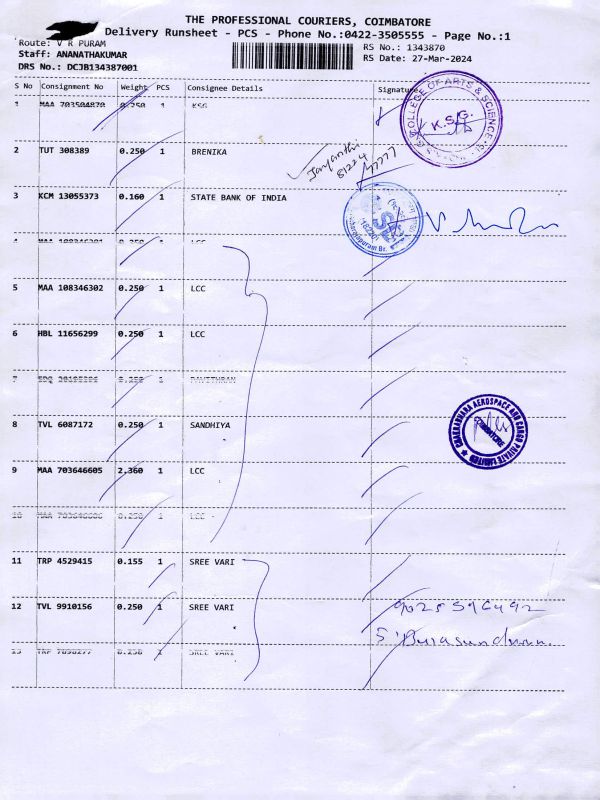 THE PROFESSIONAL COURIERS, COIMBATORE
Delivery Runsheet - PCS - Phone No.:0422-3505555 - Page No.:1
Route: V R PURAM RS No.: 1343870
Staff: ANANATHAKUMAR RS Date: 27-Mar-2024
DRS No.: DCJB134387001
S No Consignment No Weight PCS Consignee Details Signature
1 MAA 703504870 0.250 1 KSG
COLLEGE OF ARTS & SCIENCE
K.S.G.
2 TUT 308389 0.250 1 BRENIKA
Jayanthi
3 KCM 13055373 0.160 1 STATE BANK OF INDIA
4 MAA 108346301 0.250 1 LCC
5 MAA 108346302 0.250 1 LCC
6 HBL 11656299 0.250 1 LCC
7 1 PAVITHRAN
8 TVL 6087172 0.250 1 SANDHIYA
CHAKRADHARA AEROSPACE AND CARGO PRIVATE LIMITED
COIMBATORE
9 MAA 703646605 2.360 1 LCC
10 MAA 703646606 0.250 1 LCC
11 TRP 4529415 0.155 1 SREE VARI
12 TVL 9910156 0.250 1 SREE VARI
13 TRP 7098277 0.150 1 SREE VARI